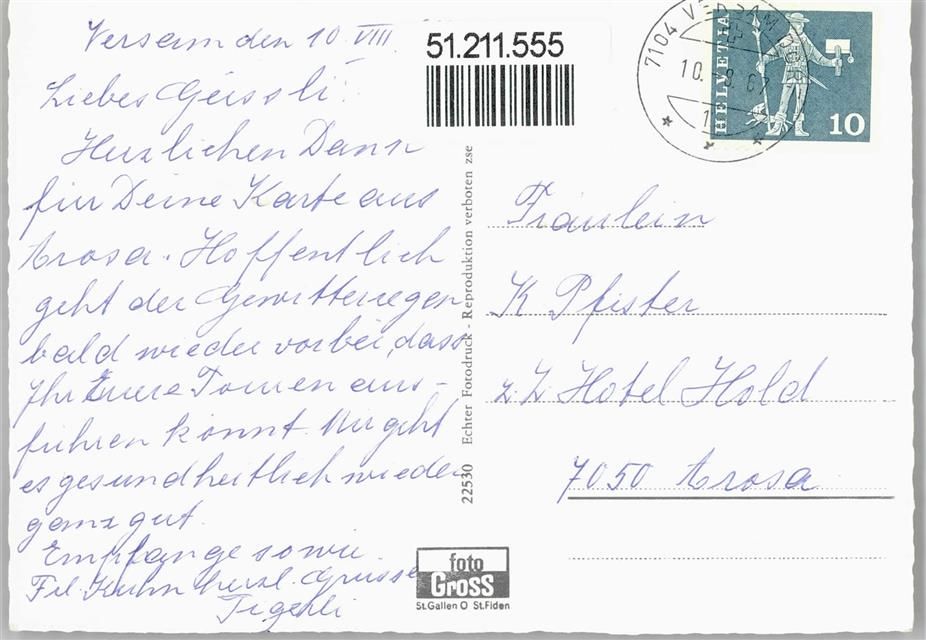 Versam den 10. VIII.
Liebes Geissli!
Herzlichen Dank
für Deine Karte aus
Arosa. Hoffentlich
geht der Gewitterregen
bald wieder vorbei, dass
Ihr Eure Touren aus-
führen könnt. Mir geht
es gesundheitlich wieder
ganz gut.
Empfange sowie
Frl. Kuhn herzl. Grüsse
51.211.555
22530 Echter Fotodruck - Reproduktion verboten zse
foto
Gross
St.Gallen O St.Fiden
7104 VERSAM
10. 8. 67
HELVETIA
10
Fräulein
K Pfister
z. Z. Hotel Hold
7050 Arosa